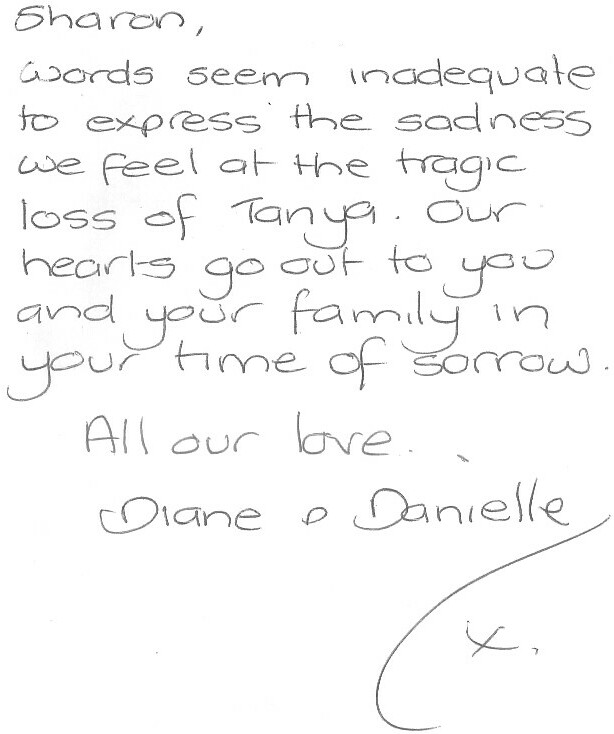 Sharon,
words seem inadequate
to express the sadness
we feel at the tragic
loss of Tanya. Our
hearts go out to you
and your family in
your time of sorrow.
All our love.
Diane & Danielle
x.